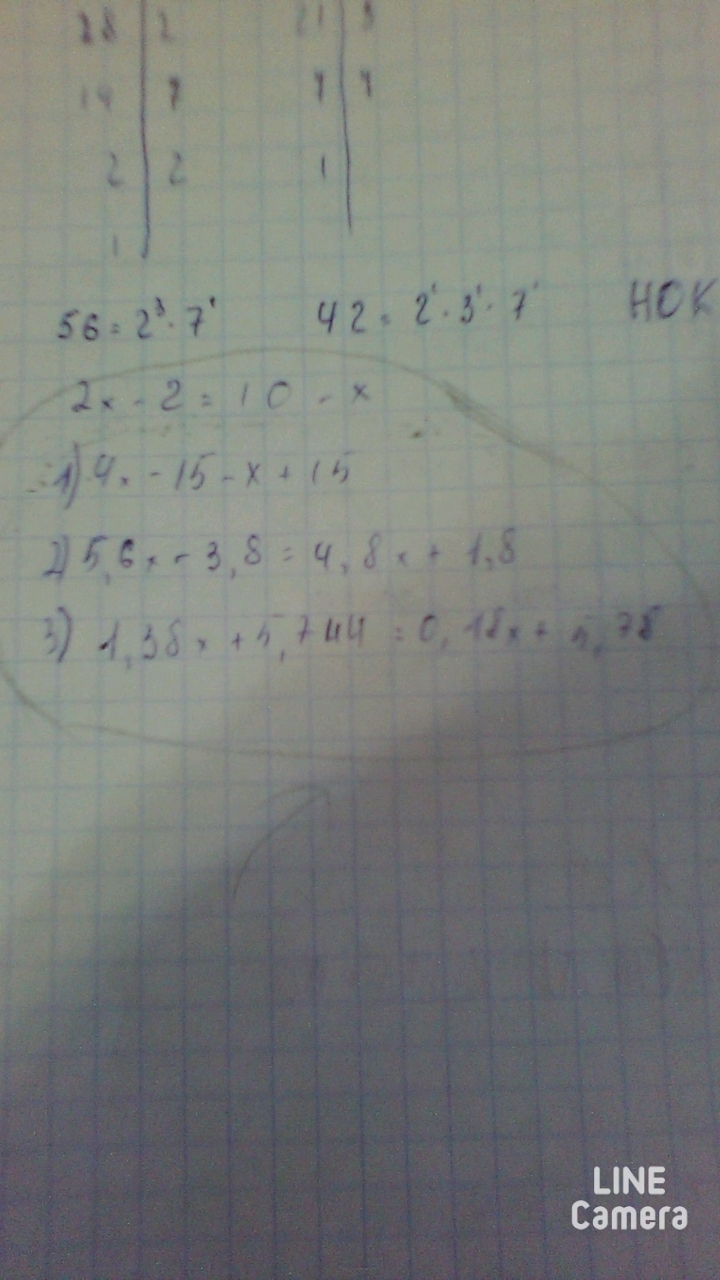 28 | 2    21 | 3
14 | 7    7 | 7
2 | 2    1
1
56 = 2³ · 7¹    42 = 2¹ · 3¹ · 7¹    НОК
2x - 2 = 10 - x
1) 4x - 15 - x + 15
2) 5,6x - 3,8 = 4,8x + 1,8
3) 1,38x + 5,744 = 0,18x + 5,78
LINE
Camera